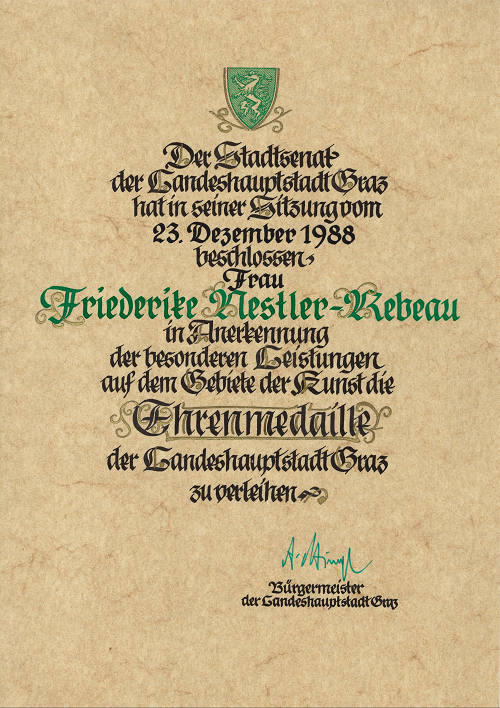 Der Stadtsenat
der Landeshauptstadt Graz
hat in seiner Sitzung vom
23. Dezember 1988
beschlossen,
Frau
Friederike Nestler-Rebeau
in Anerkennung
der besonderen Leistungen
auf dem Gebiete der Kunst die
Ehrenmedaille
der Landeshauptstadt Graz
zu verleihen
Bürgermeister
der Landeshauptstadt Graz